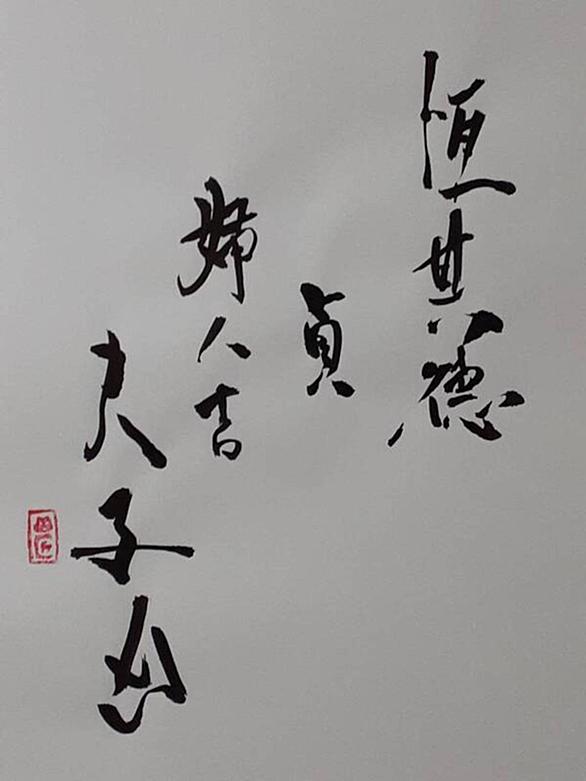 恒其德
貞
婦人吉
夫子凶